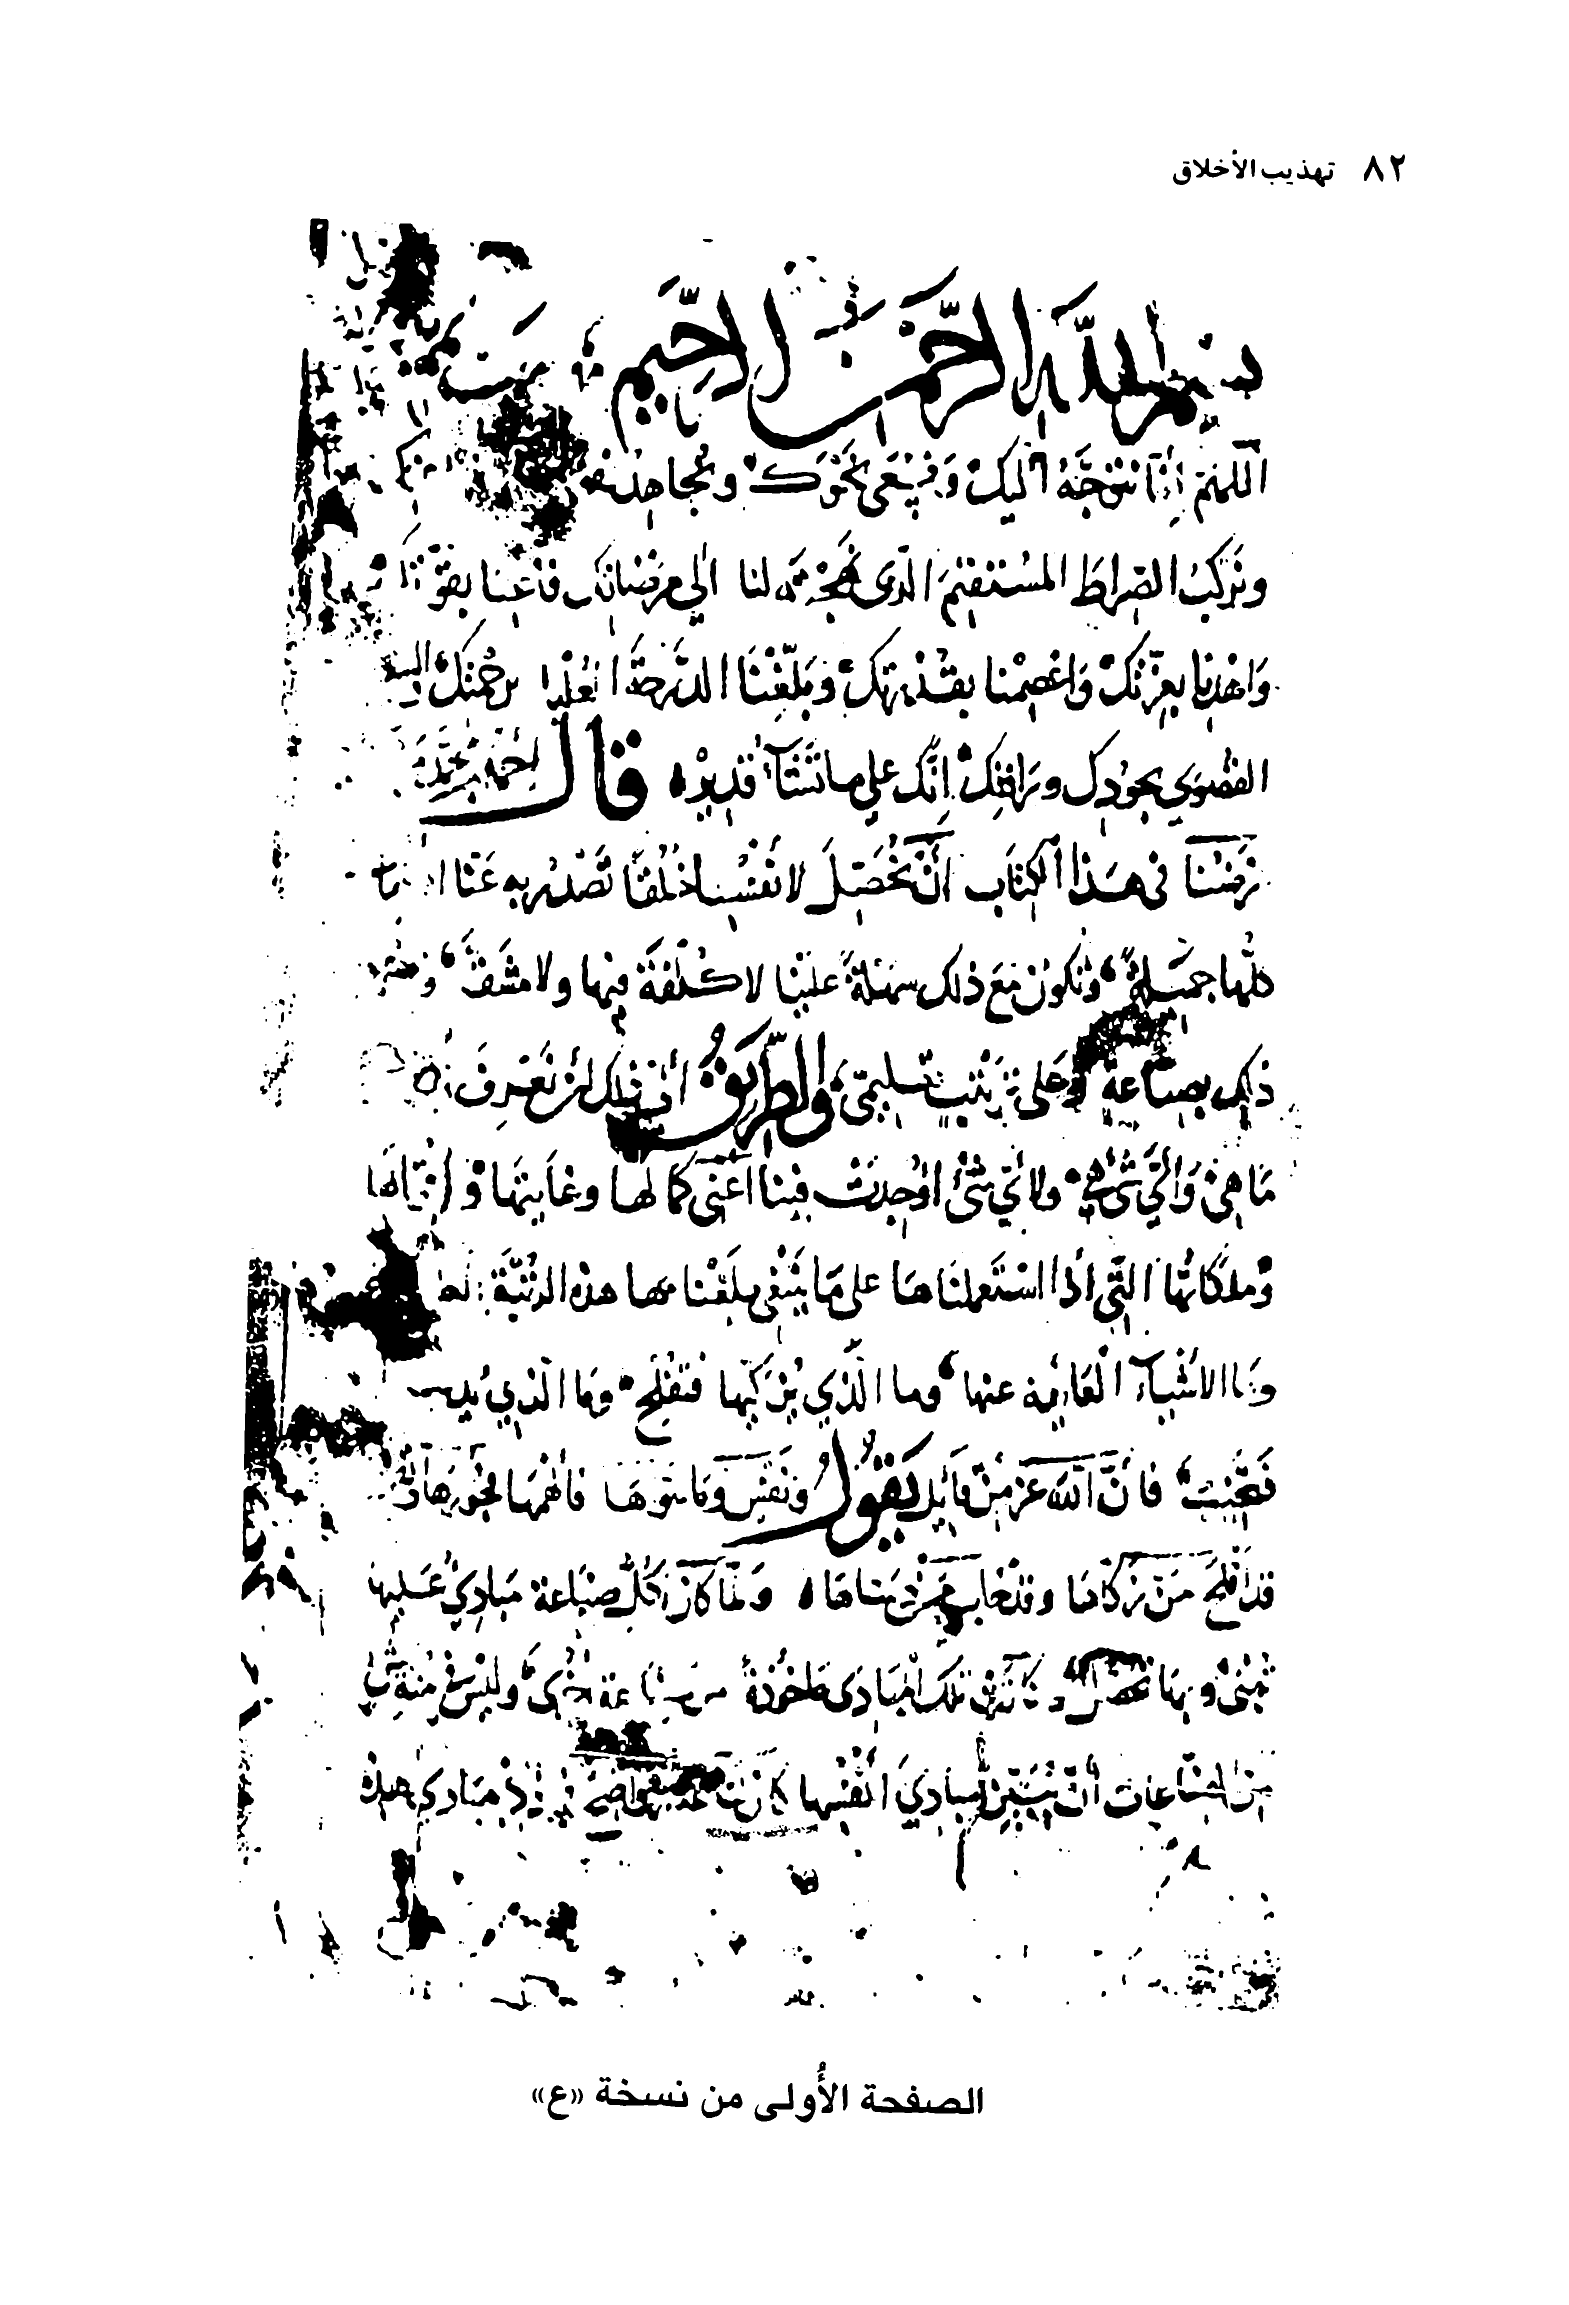 ٨٢ تهذيب الأخلاق
بسم الله الرحمن الرحيم
اللهم إنا نتوجه اليك ونسعى نحوك ونجاهد
ونركب الصراط المستقيم الذي نهجته لنا الي مرضاتك فأعنا بقوتك
واهدنا بعزتك واعصمنا بقدرتك وبلغنا الدرجة العليا برحمتك والسعادة
القصوي بجودك ورافتك انك علي ما تشآء قدير قال احمد بن محمد
غرضنا في هذا الكتاب أن نحصل لانفسنا خلقا تصدر به عنا
كلها جميلة وتكون مع ذلك سهلة علينا لا كلفة فيها ولا مشقة ويكون
ذلك بصناعة وعلى ترتيب تعليمي والطريق في ذلك أن نعرف
ما هي واي شي هي ولاي شي اوجدت فينا اعني كمالها وغايتها و
وملكاتها التي اذا استعملناها على ما ينبغي بلغنا بها هذه الرتبة
وما الاشيآء العايقة عنها وما الذي يزكيها فتفلح وما الذي
فتخيب فان الله عز من قايل يقول ونفس وما سواها فألهمها فجورها
قد أفلح من زكاها وقد خاب من دساها ولما كان لكل صناعة مبادي عليها
تبنى وبها تحصل وكانت تلك المبادي ماخوذة من صناعة اخرى وليس في
من الصناعات أن تبين مبادي انفسها كان لنا واضح في ذكر مبادي هذه
الصفحة الأولى من نسخة «ع»